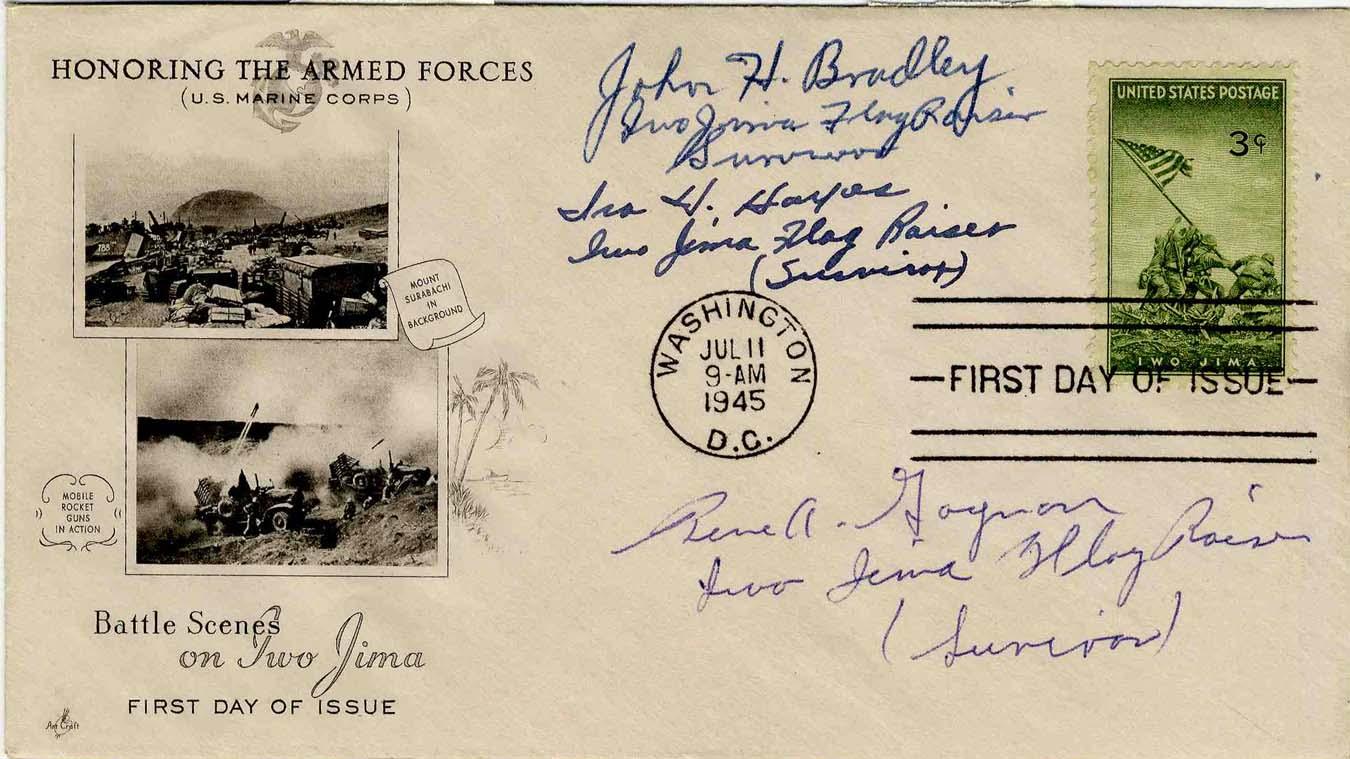 HONORING THE ARMED FORCES
(U.S. MARINE CORPS)
MOUNT
SURABACHI
IN
BACKGROUND
MOBILE
ROCKET
GUNS
IN ACTION
Battle Scenes
on Iwo Jima
FIRST DAY OF ISSUE
Art Craft
John H. Bradley
Iwo Jima Flag Raiser
Survivor
Ira H. Hayes
Iwo Jima Flag Raiser
(Survivor)
UNITED STATES POSTAGE
3¢
IWO JIMA
WASHINGTON
JUL 11
9-AM
1945
D.C.
FIRST DAY OF ISSUE
Rene A. Gagnon
Iwo Jima Flag Raiser
(Survivor)